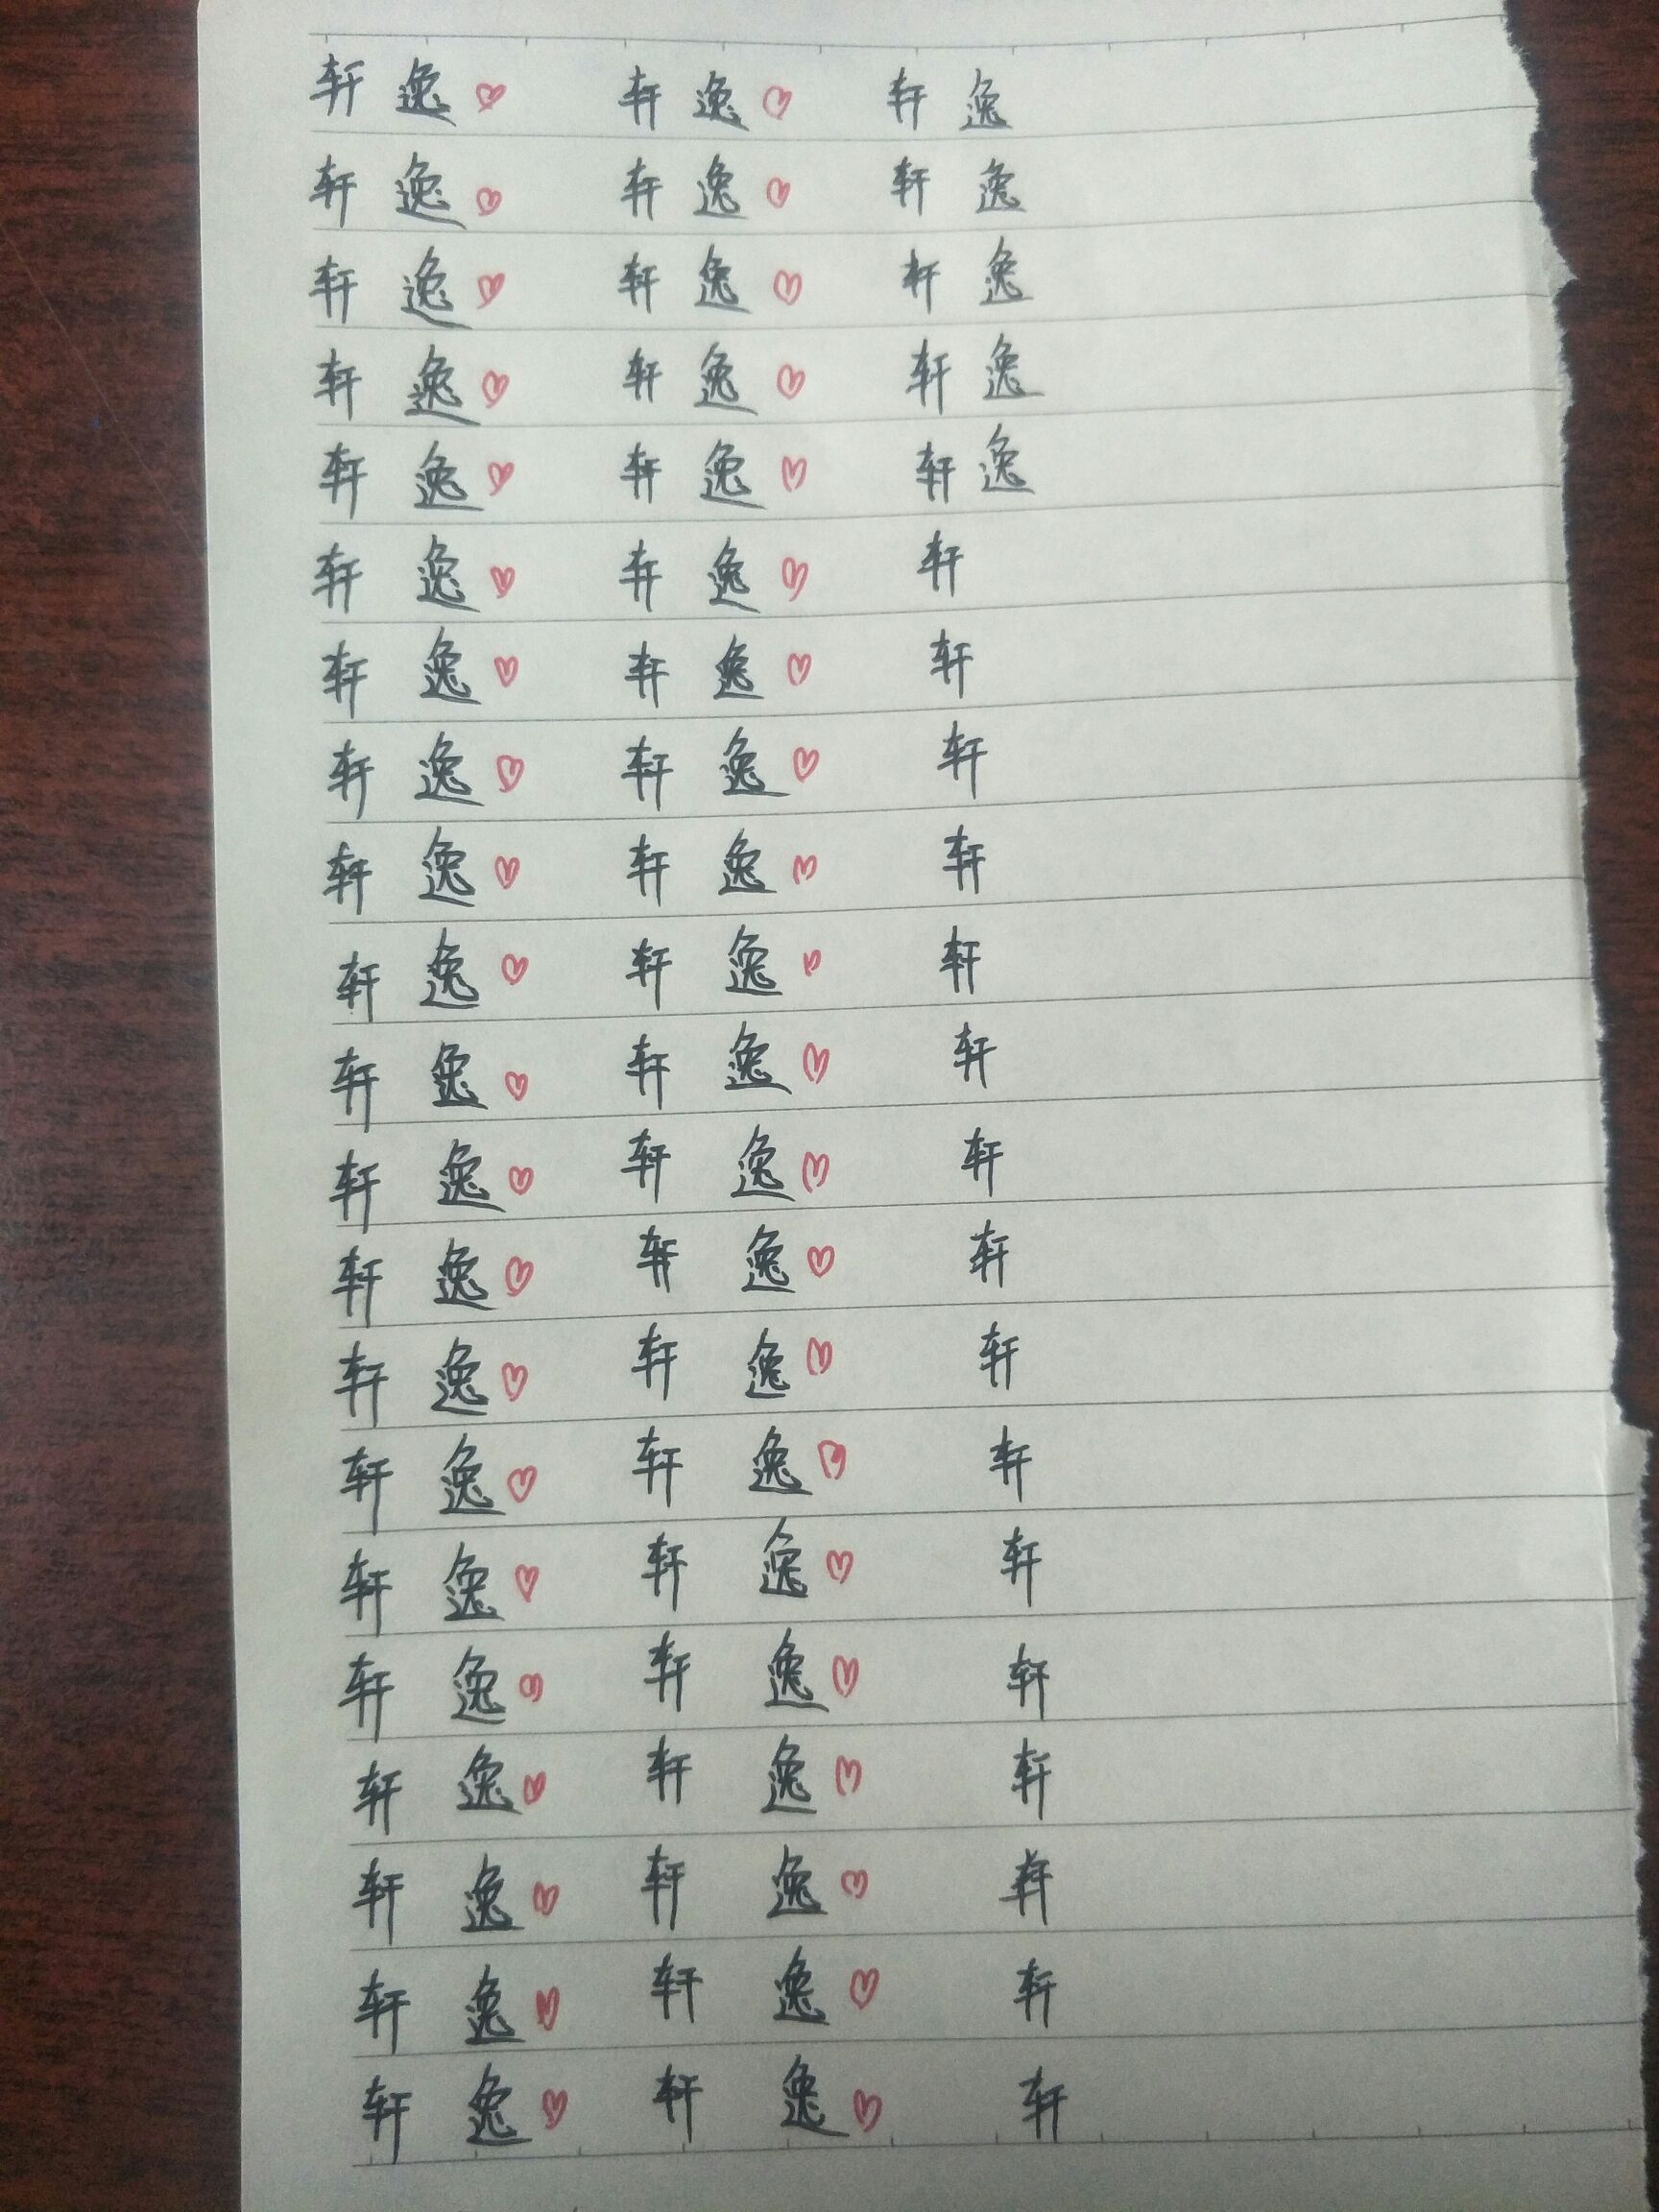 轩 逸 ♡ 轩 逸 ♡ 轩 逸
轩 逸 ♡ 轩 逸 ♡ 轩 逸
轩 逸 ♡ 轩 逸 ♡ 轩 逸
轩 逸 ♡ 轩 逸 ♡ 轩 逸
轩 逸 ♡ 轩 逸 ♡ 轩 逸
轩 逸 ♡ 轩 逸 ♡ 轩
轩 逸 ♡ 轩 逸 ♡ 轩
轩 逸 ♡ 轩 逸 ♡ 轩
轩 逸 ♡ 轩 逸 ♡ 轩
轩 逸 ♡ 轩 逸 ♡ 轩
轩 逸 ♡ 轩 逸 ♡ 轩
轩 逸 ♡ 轩 逸 ♡ 轩
轩 逸 ♡ 轩 逸 ♡ 轩
轩 逸 ♡ 轩 逸 ♡ 轩
轩 逸 ♡ 轩 逸 ♡ 轩
轩 逸 ♡ 轩 逸 ♡ 轩
轩 逸 ♡ 轩 逸 ♡ 轩
轩 逸 ♡ 轩 逸 ♡ 轩
轩 逸 ♡ 轩 逸 ♡ 轩
轩 逸 ♡ 轩 逸 ♡ 轩
轩 逸 ♡ 轩 逸 ♡ 轩